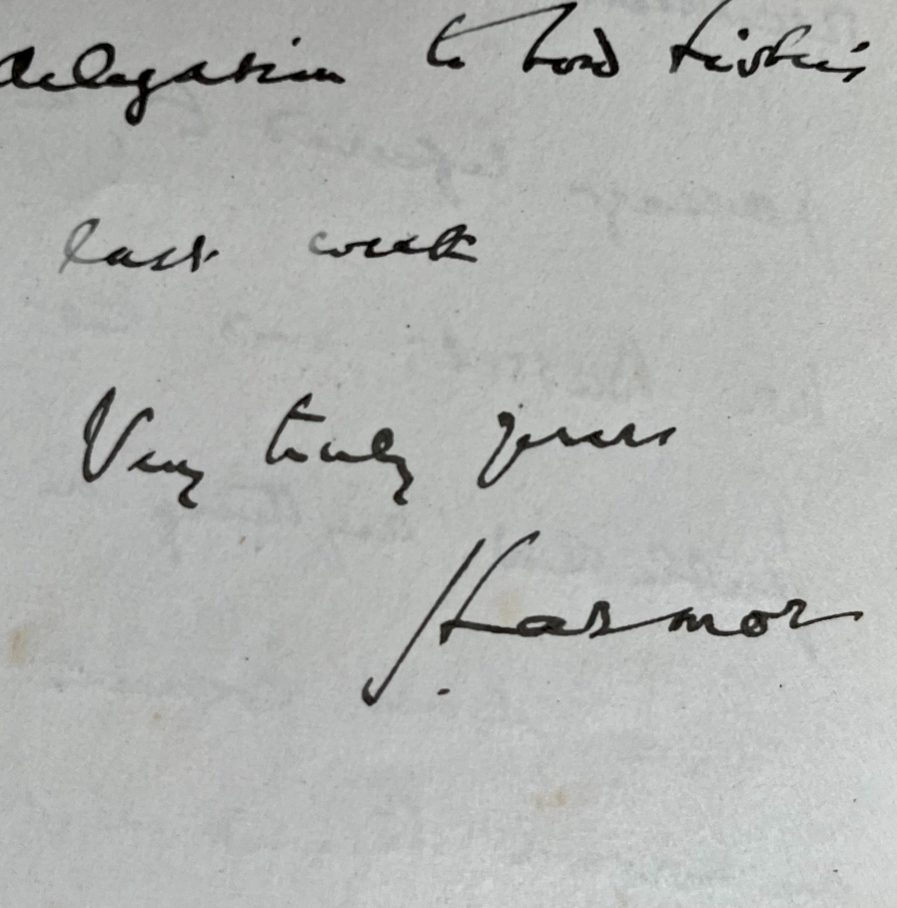 delegation to Lord Kelvin's
last week
Very truly yours
J. Larmor